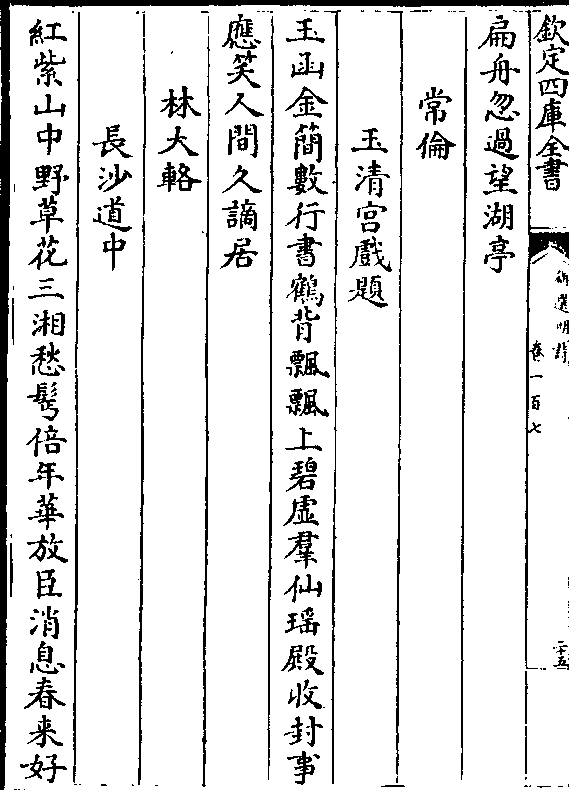 欽定四庫全書
御選明詩
卷一百七
二十五
扁舟忽過望湖亭
常倫
玉清宮戲題
玉函金簡數行書鶴背飄飄上碧虛羣仙瑶殿收封事
應笑人間久謫居
林大輅
長沙道中
紅紫山中野草花三湘愁鬂倍年華放臣消息春来好